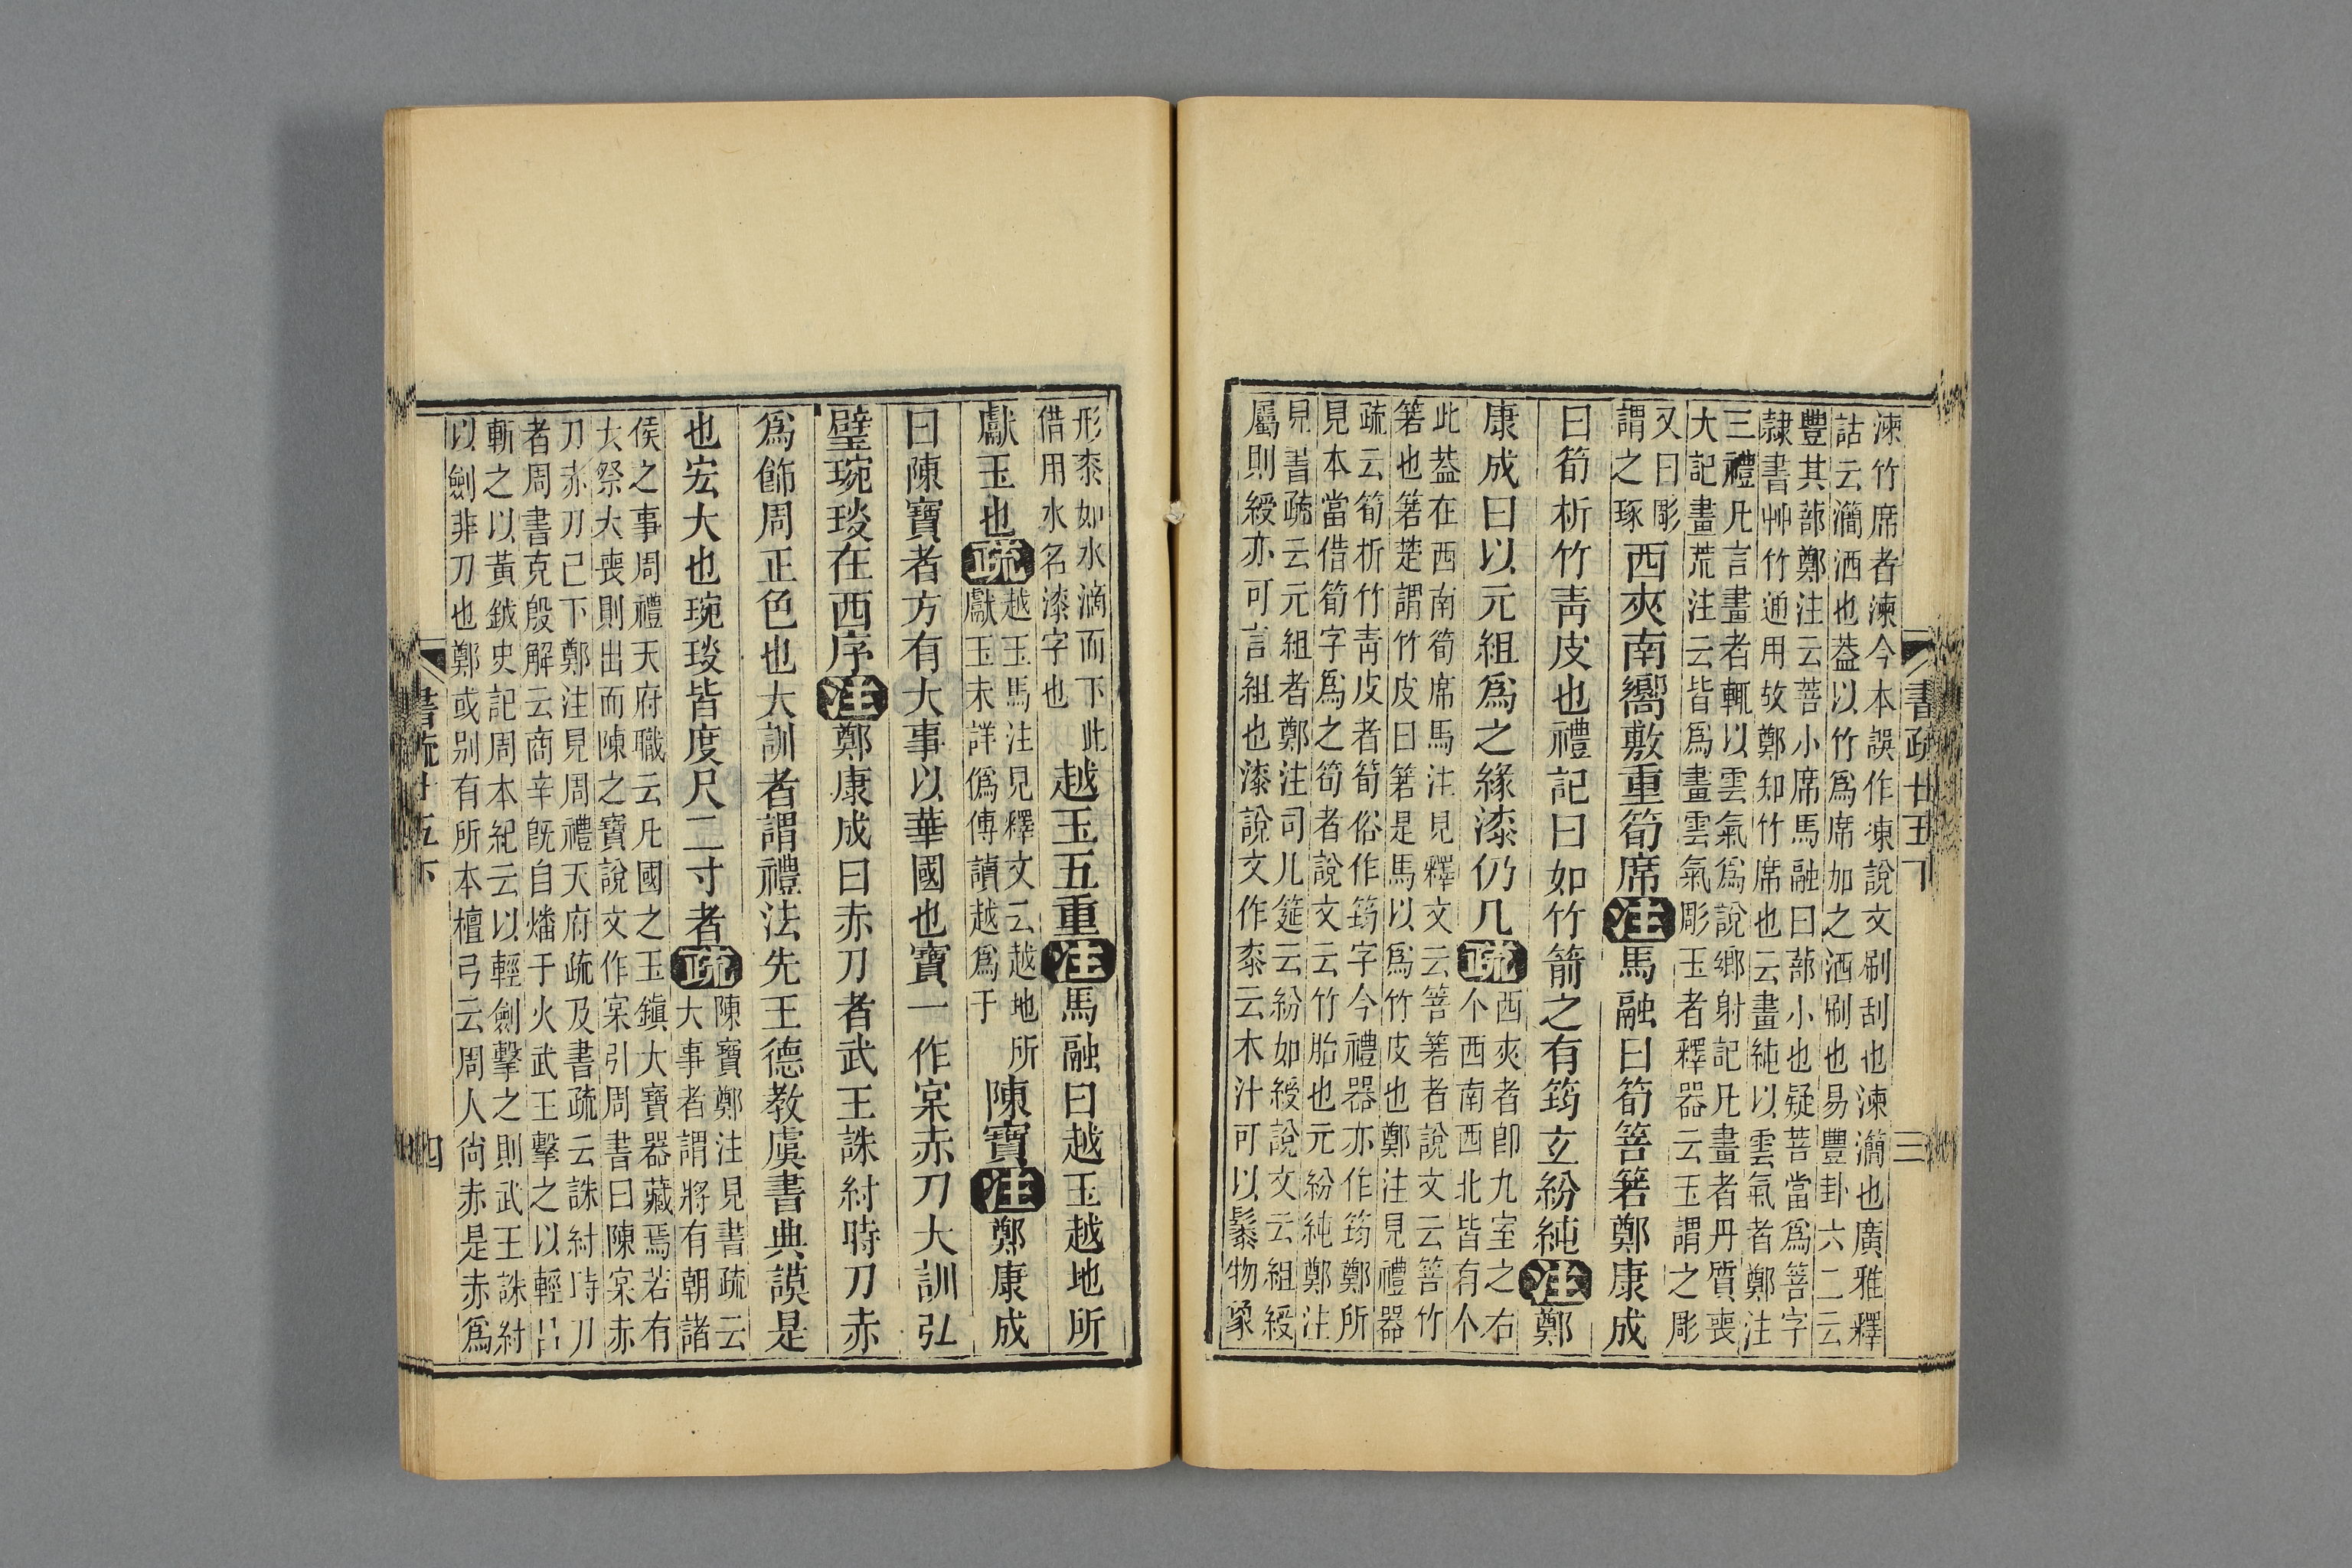 書疏廿五下
三
湅竹席者湅今本誤作凍說文刷刮也湅瀾也廣雅釋
詁云灡洒也葢以竹爲席加之洒刷也易豐卦六二云
豐其蔀鄭注云菩小席馬融曰蔀小也疑菩當爲菩字
隸書艸竹通用故鄭知竹席也云畫純以雲氣者鄭注
三禮凡言畫者輒以雲氣爲說鄉射記凡畫者丹質喪
大記畫荒注云皆爲畫雲氣彫玉者釋器云玉謂之彫
又曰彫
謂之琢
西夾南嚮敷重筍席注馬融曰筍箁箬鄭康成
曰筍析竹靑皮也禮記曰如竹箭之有筠玄紛純注鄭
康成曰以元組爲之緣漆仍几疏
西夾者卽九室之右
个西南西北皆有个
此葢在西南筍席馬注見釋文云箁箬者說文云箁竹
箬也箬楚謂竹皮曰箬是馬以爲竹皮也鄭注見禮器
疏云筍析竹靑皮者筍俗作筠字今禮器亦作筠鄭所
見本當借筍字爲之筍者說文云竹胎也元紛純鄭注
見書疏云元組者鄭注司几筵云紛如綬說文云組綬
屬則綬亦可言組也漆說文作桼云木汁可以髹物象
形桼如水滴而下此
借用水名漆字也
越玉五重注馬融曰越玉越地所
獻玉也疏
越玉馬注見釋文云越地所
獻玉未詳僞傳讀越爲于
陳寶注鄭康成
曰陳寶者方有大事以華國也寶一作宲赤刀大訓弘
璧琬琰在西序注鄭康成曰赤刀者武王誅紂時刀赤
爲飾周正色也大訓者謂禮法先王德教虞書典謨是
也宏大也琬琰皆度尺二寸者疏
陳寶鄭注見書疏云
大事者謂將有朝諸
侯之事周禮天府職云凡國之玉鎭大寶器藏焉若有
大祭大喪則出而陳之寶說文作宲引周書曰陳宲赤
刀赤刀已下鄭注見周禮天府疏及書疏云誅紂時刀
者周書克殷解云商辛旣自燔于火武王擊之以輕呂
斬之以黃鉞史記周本紀云以輕劍擊之則武王誅紂
以劍非刀也鄭或別有所本檀弓云周人尙赤是赤爲
書疏廿五下
四